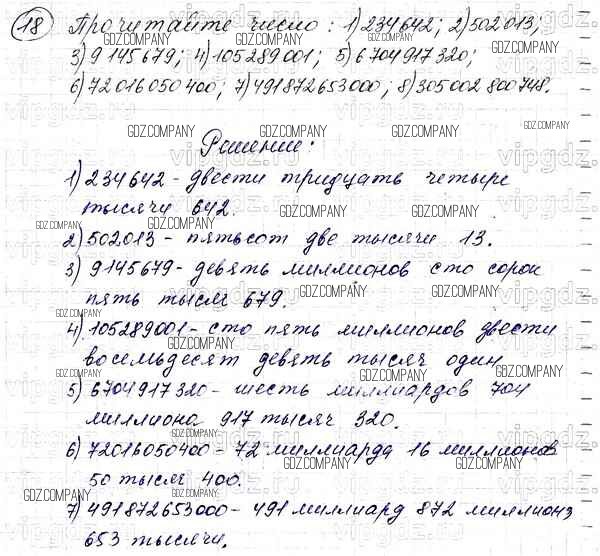 18 Прочитайте число: 1) 234642; 2) 502013;
3) 9145679; 4) 105289001; 5) 6704917320;
6) 72016050400; 7) 491872653000; 8) 305002800748.
Решение:
1) 234642 - двести тридцать четыре
тысячи 642.
2) 502013 - пятьсот две тысячи 13.
3) 9145679 - девять миллионов сто сорок
пять тысяч 679.
4) 105289001 - сто пять миллионов двести
восемьдесят девять тысяч один
5) 6704917320 - шесть миллиардов 704
миллиона 917 тысяч 320.
6) 72016050400 - 72 миллиарда 16 миллионов
50 тысяч 400.
7) 491872653000 - 491 миллиард 872 миллиона
653 тысячи.
GDZ.COMPANY
vipgdz.